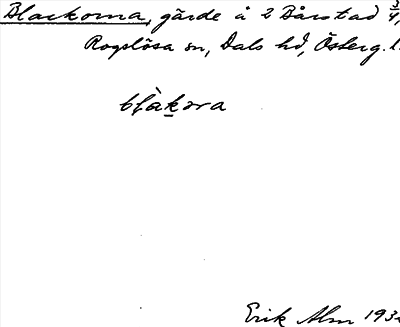 Blackorna, gärde å 2 Bårstad 3/4,
Rogslösa sn, Dals hd, Österg. l.
blàkora
Erik Alm 193